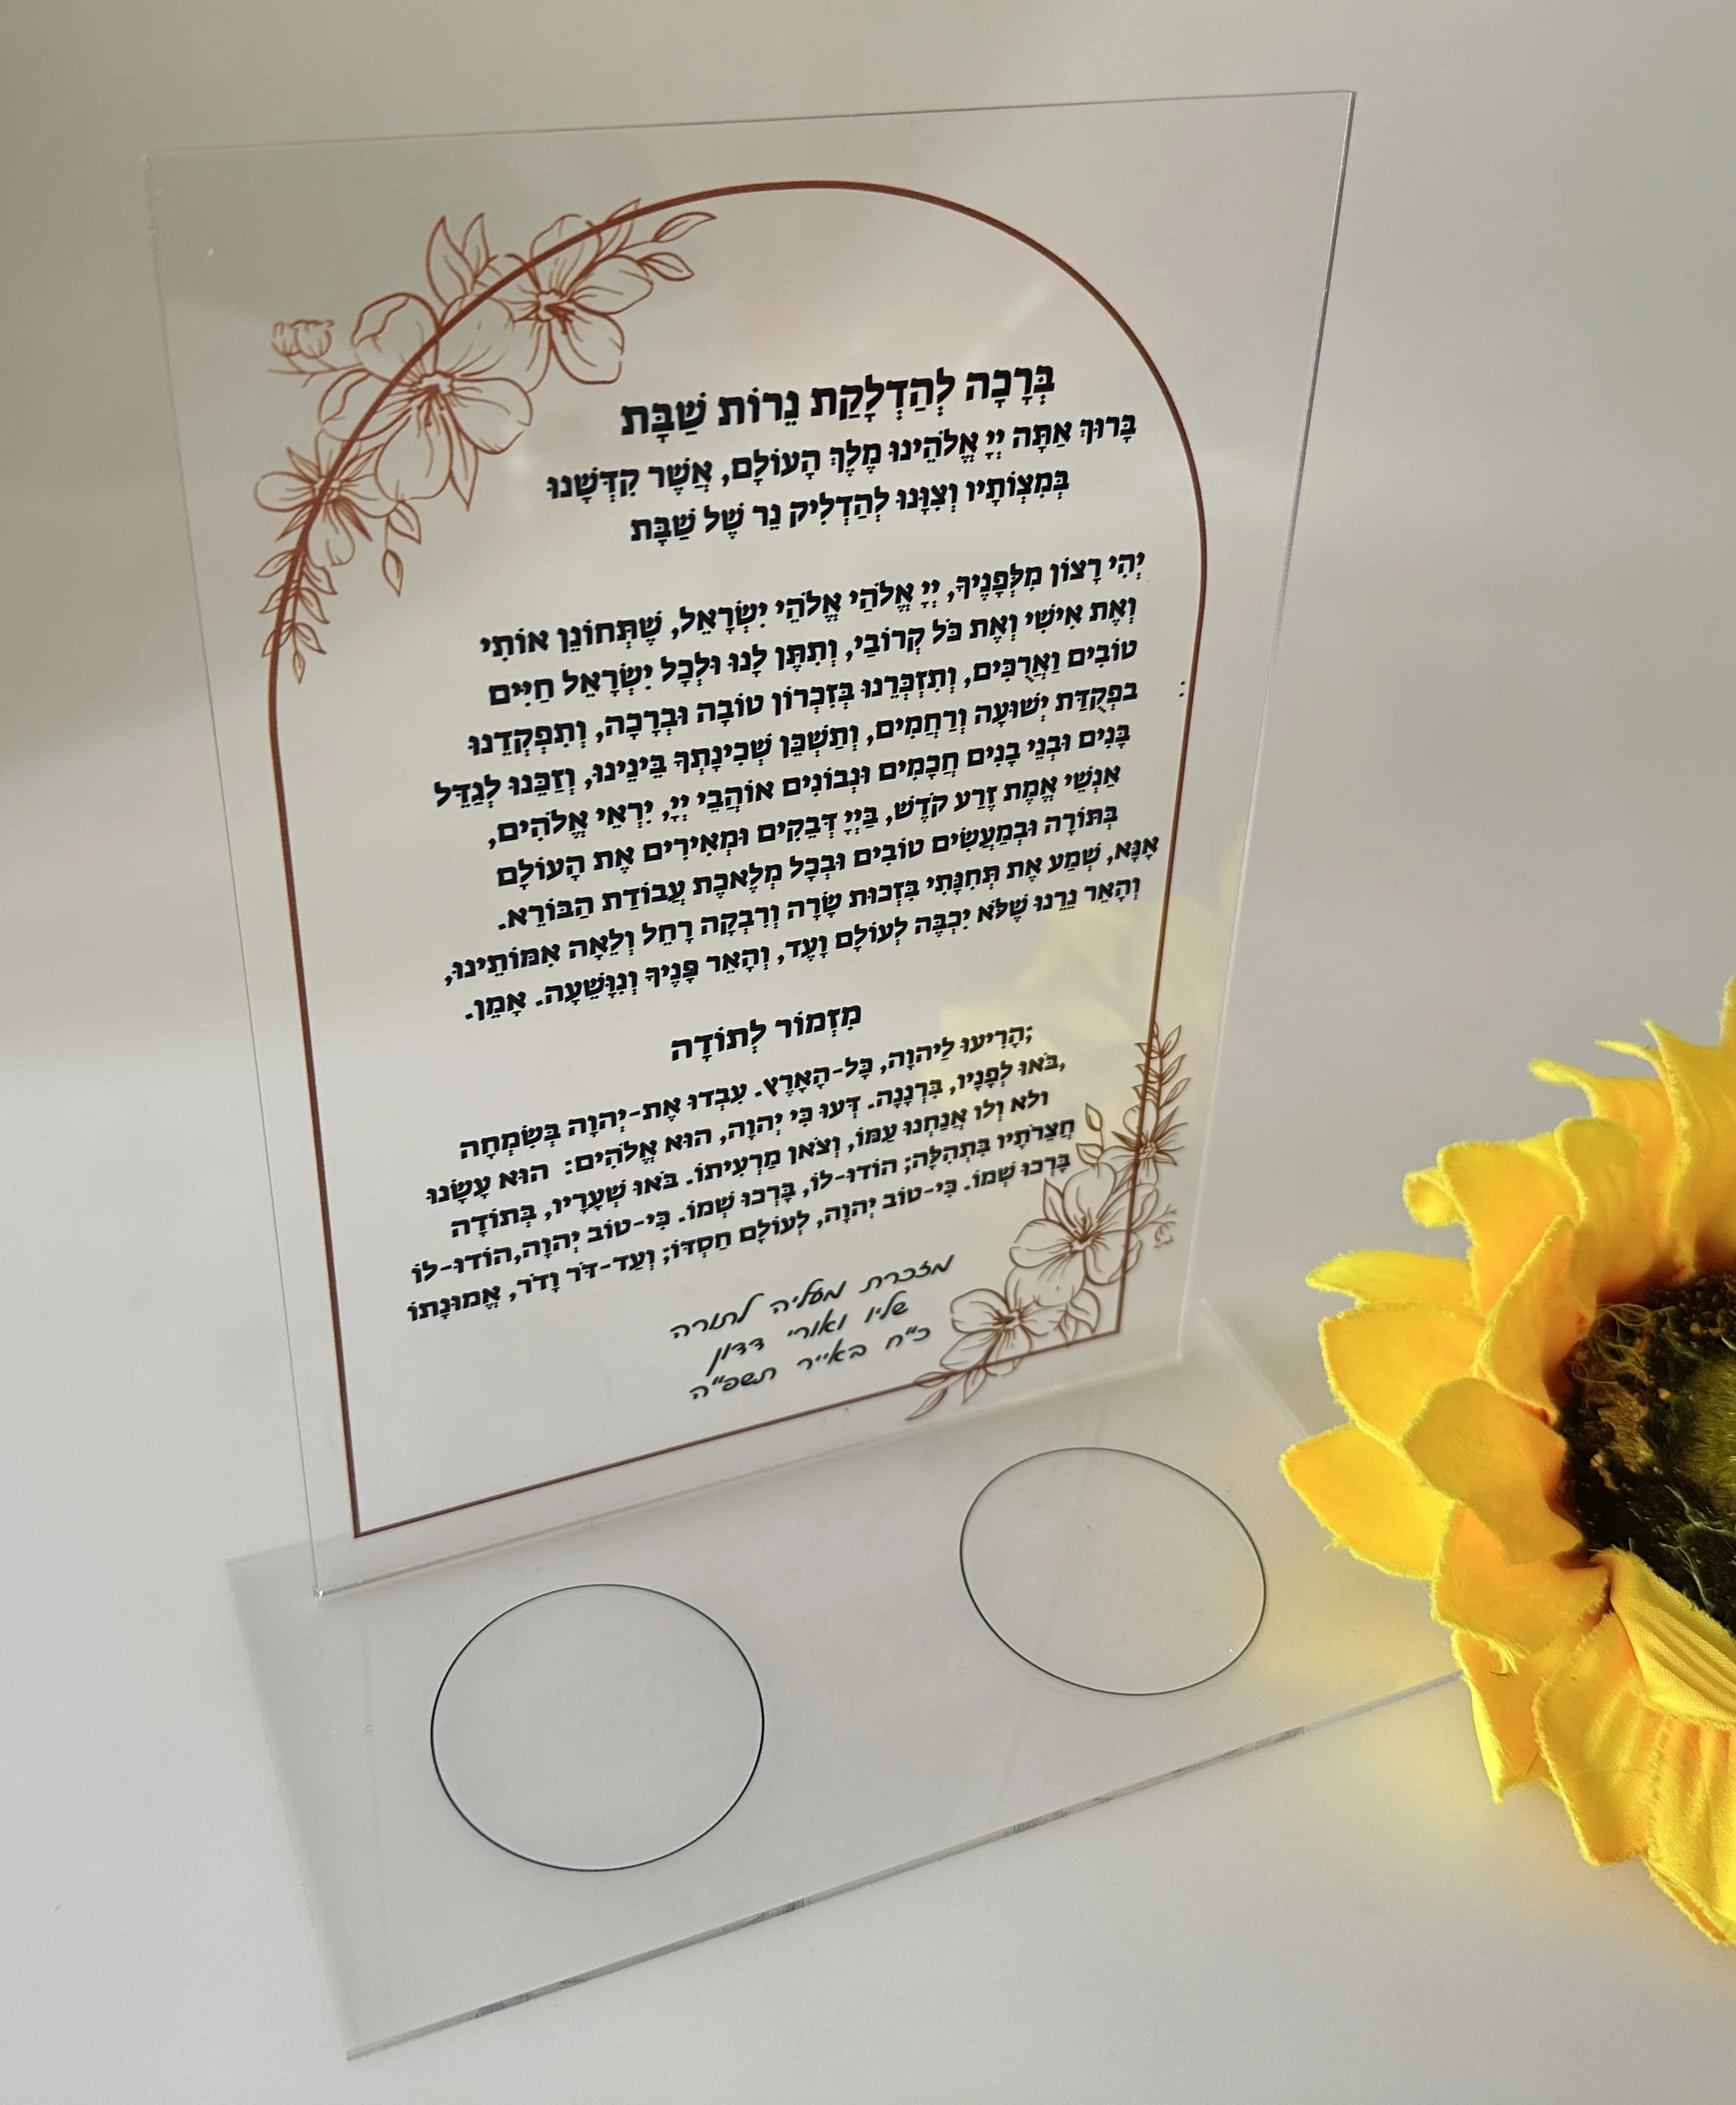 בְּרָכָה לְהַדְלָקַת נֵרוֹת שַׁבָּת
בָּרוּךְ אַתָּה יְיָ אֱלֹהֵינוּ מֶלֶךְ הָעוֹלָם, אֲשֶׁר קִדְּשָׁנוּ
בְּמִצְוֹתָיו וְצִוָּנוּ לְהַדְלִיק נֵר שֶׁל שַׁבָּת
יְהִי רָצוֹן מִלְּפָנֶיךָ, יְיָ אֱלֹהַי אֱלֹהֵי יִשְׂרָאֵל, שֶׁתְּחוֹנֵן אוֹתִי
וְאֶת אִישִׁי וְאֶת כֹּל קְרוֹבַי, וְתִתֶּן לָנוּ וּלְכָל יִשְׂרָאֵל חַיִּים
טוֹבִים וַאֲרֻכִּים, וְתִזְכְּרֵנוּ בְּזִכְרוֹן טוֹבָה וּבְרָכָה, וְתִפְקְדֵנוּ
בִּפְקֻדַּת יְשׁוּעָה וְרַחֲמִים, וְתַשְׁכֵּן שְׁכִינָתְךָ בֵּינֵינוּ, וְזַכֵּנוּ לְגַדֵּל
בָּנִים וּבְנֵי בָנִים חֲכָמִים וּנְבוֹנִים אוֹהֲבֵי יְיָ, יִרְאֵי אֱלֹהִים,
אַנְשֵׁי אֱמֶת זֶרַע קֹדֶשׁ, בַּיְיָ דְּבֵקִים וּמְאִירִים אֶת הָעוֹלָם
בְּתּוֹרָה וּבְמַעֲשִׂים טוֹבִים וּבְכָל מְלֶאכֶת עֲבוֹדַת הַבּוֹרֵא.
אָנָּא, שְׁמַע אֶת תְּחִנָּתִי בִּזְכוּת שָׂרָה וְרִבְקָה רָחֵל וְלֵאָה אִמּוֹתֵינוּ,
וְהָאֵר נֵרֵנוּ שֶׁלֹּא יִכְבֶּה לְעוֹלָם וָעֶד, וְהָאֵר פָּנֶיךָ וְנִוָּשֵׁעָה. אָמֵן.
מִזְמוֹר לְתוֹדָה
;הָרִיעוּ לַיהוָה, כָּל-הָאָרֶץ. עִבְדוּ אֶת-יְהוָה בְּשִׂמְחָה
,בֹּאוּ לְפָנָיו, בִּרְנָנָה. דְּעוּ כִּי יְהוָה, הוּא אֱלֹהִים: הוּא עָשָׂנוּ
ולא וְלוֹ אֲנַחְנוּ עַמּוֹ, וְצֹאן מַרְעִיתוֹ. בֹּאוּ שְׁעָרָיו, בְּתוֹדָה
חֲצֵרֹתָיו בִּתְהִלָּה; הוֹדוּ-לוֹ, בָּרְכוּ שְׁמוֹ. כִּי-טוֹב יְהוָה,הוֹדוּ-לוֹ
בָּרְכוּ שְׁמוֹ. כִּי-טוֹב יְהוָה, לְעוֹלָם חַסְדּוֹ; וְעַד-דֹּר וָדֹר, אֱמוּנָתוֹ
מזכרת מעליה לתורה
שליו ואורי דדון
כ"ח באייר תשפ"ה